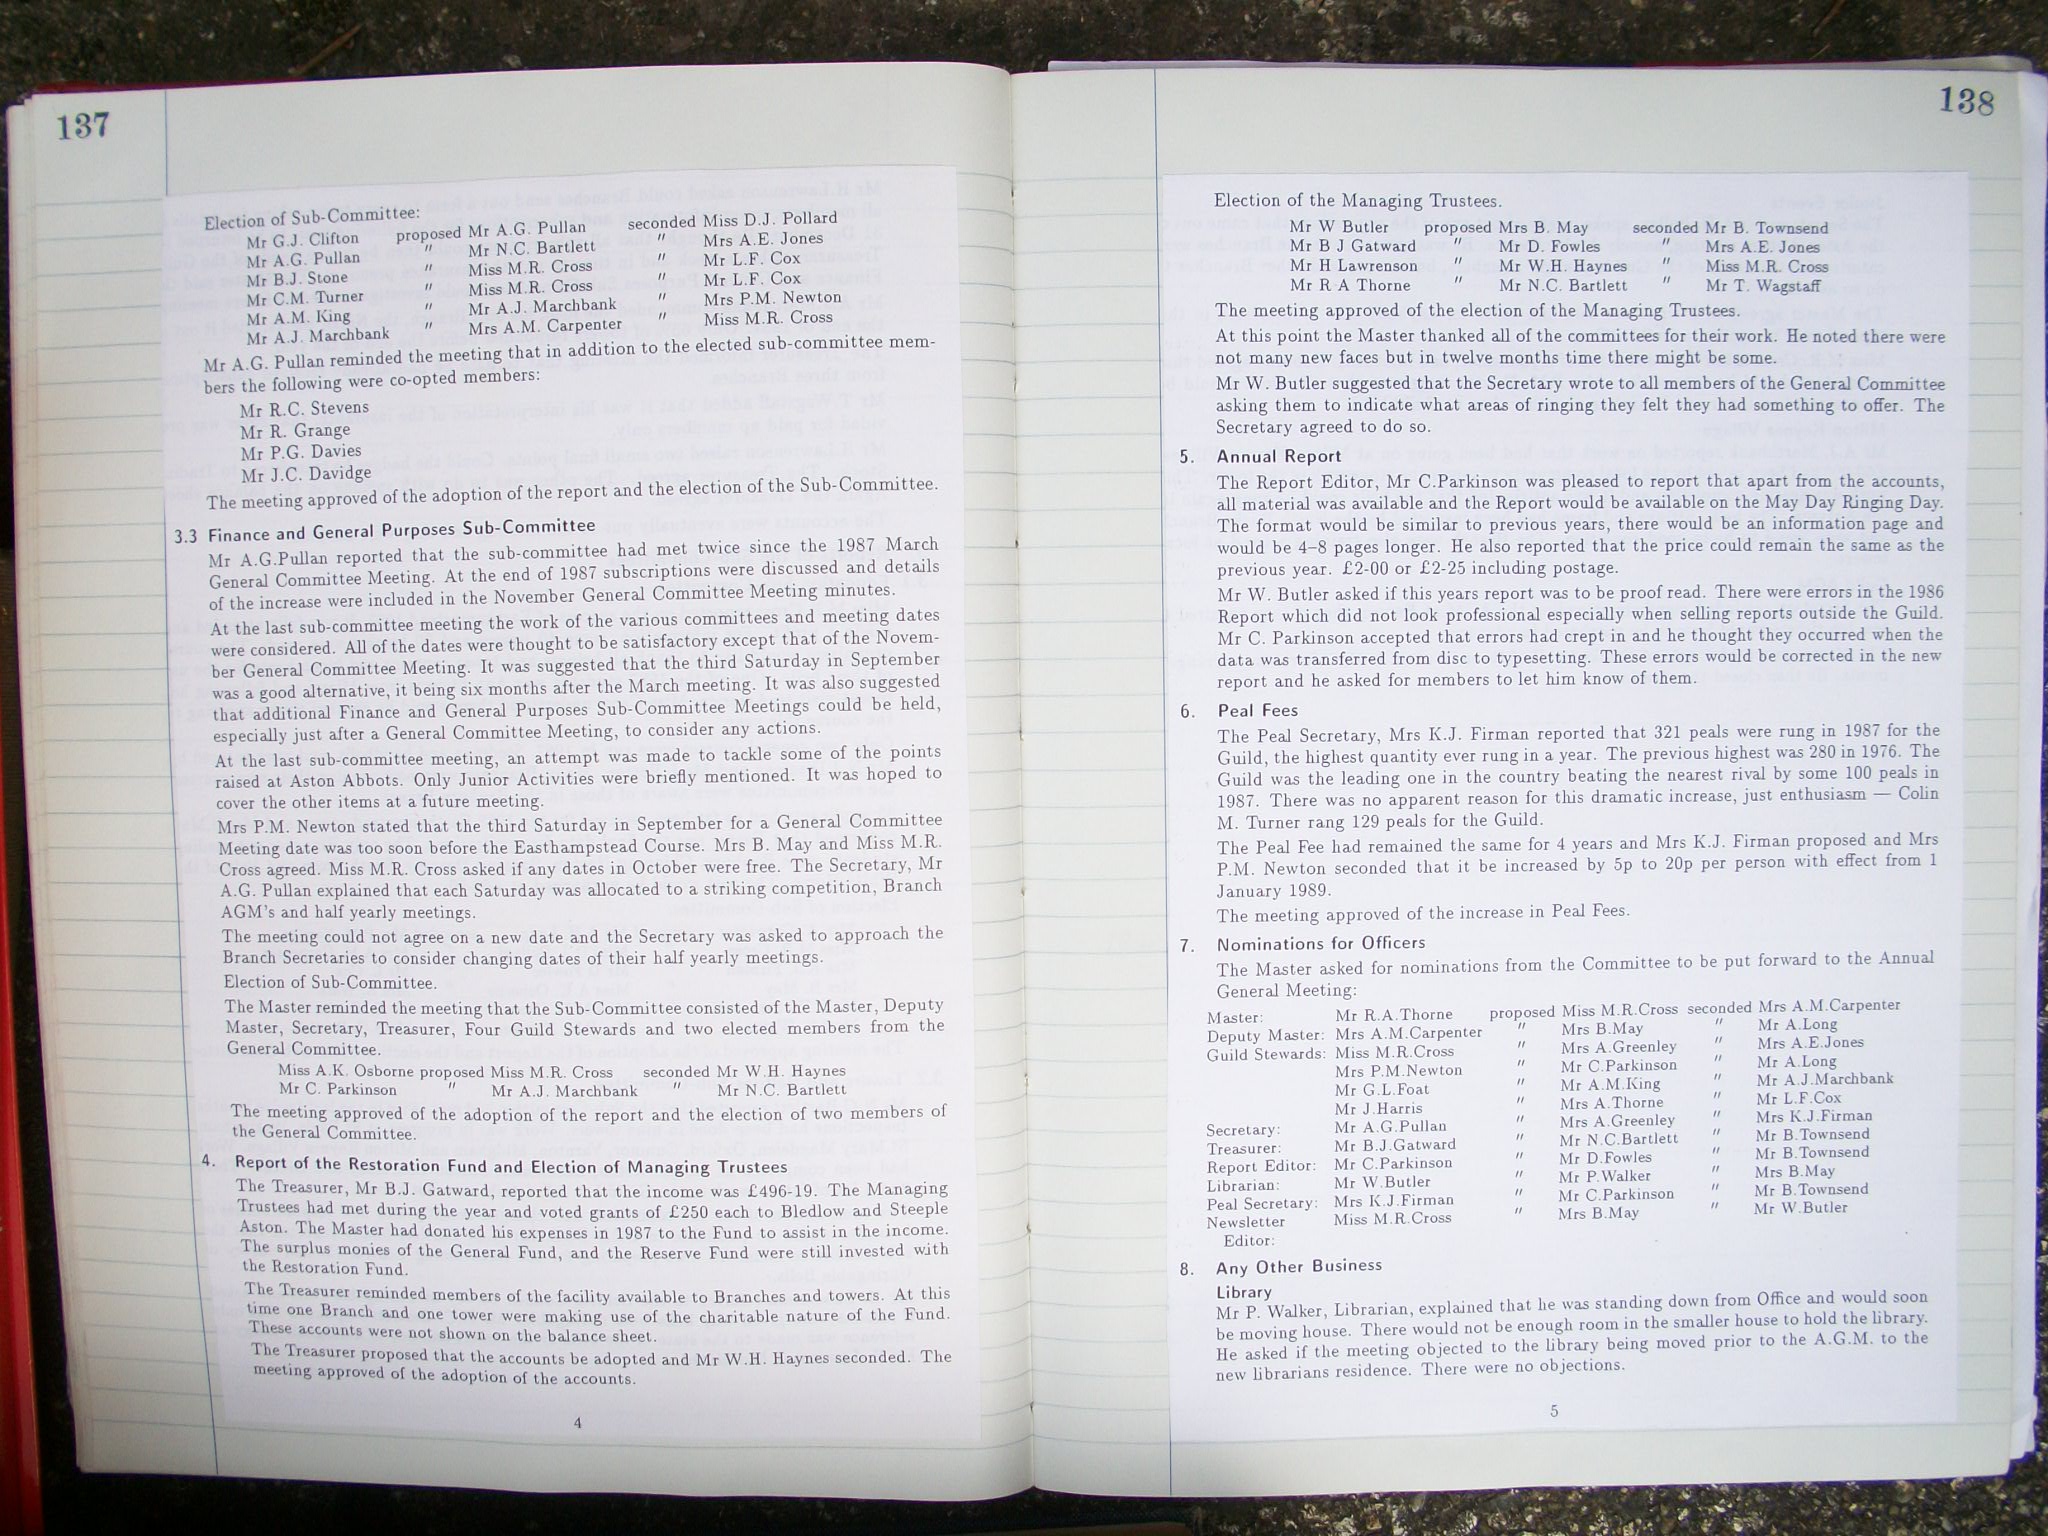 137
Election of Sub-Committee:
Mr G.J. Clifton proposed Mr A.G. Pullan seconded Miss D.J. Pollard
Mr A.G. Pullan " Mr N.C. Bartlett " Mrs A.E. Jones
Mr B.J. Stone " Miss M.R. Cross " Mr L.F. Cox
Mr C.M. Turner " Miss M.R. Cross " Mr L.F. Cox
Mr A.M. King " Mr A.J. Marchbank " Mrs P.M. Newton
Mr A.J. Marchbank " Mrs A.M. Carpenter " Miss M.R. Cross
Mr A.G. Pullan reminded the meeting that in addition to the elected sub-committee mem-
bers the following were co-opted members:
Mr R.C. Stevens
Mr R. Grange
Mr P.G. Davies
Mr J.C. Davidge
The meeting approved of the adoption of the report and the election of the Sub-Committee.
3.3 Finance and General Purposes Sub-Committee
Mr A.G.Pullan reported that the sub-committee had met twice since the 1987 March
General Committee Meeting. At the end of 1987 subscriptions were discussed and details
of the increase were included in the November General Committee Meeting minutes.
At the last sub-committee meeting the work of the various committees and meeting dates
were considered. All of the dates were thought to be satisfactory except that of the Novem-
ber General Committee Meeting. It was suggested that the third Saturday in September
was a good alternative, it being six months after the March meeting. It was also suggested
that additional Finance and General Purposes Sub-Committee Meetings could be held,
especially just after a General Committee Meeting, to consider any actions.
At the last sub-committee meeting, an attempt was made to tackle some of the points
raised at Aston Abbots. Only Junior Activities were briefly mentioned. It was hoped to
cover the other items at a future meeting.
Mrs P.M. Newton stated that the third Saturday in September for a General Committee
Meeting date was too soon before the Easthampstead Course. Mrs B. May and Miss M.R.
Cross agreed. Miss M.R. Cross asked if any dates in October were free. The Secretary, Mr
A.G. Pullan explained that each Saturday was allocated to a striking competition, Branch
AGM's and half yearly meetings.
The meeting could not agree on a new date and the Secretary was asked to approach the
Branch Secretaries to consider changing dates of their half yearly meetings.
Election of Sub-Committee.
The Master reminded the meeting that the Sub-Committee consisted of the Master, Deputy
Master, Secretary, Treasurer, Four Guild Stewards and two elected members from the
General Committee.
Miss A.K. Osborne proposed Miss M.R. Cross seconded Mr W.H. Haynes
Mr C. Parkinson " Mr A.J. Marchbank " Mr N.C. Bartlett
The meeting approved of the adoption of the report and the election of two members of
the General Committee.
4. Report of the Restoration Fund and Election of Managing Trustees
The Treasurer, Mr B.J. Gatward, reported that the income was £496-19. The Managing
Trustees had met during the year and voted grants of £250 each to Bledlow and Steeple
Aston. The Master had donated his expenses in 1987 to the Fund to assist in the income.
The surplus monies of the General Fund, and the Reserve Fund were still invested with
the Restoration Fund.
The Treasurer reminded members of the facility available to Branches and towers. At this
time one Branch and one tower were making use of the charitable nature of the Fund.
These accounts were not shown on the balance sheet.
The Treasurer proposed that the accounts be adopted and Mr W.H. Haynes seconded. The
meeting approved of the adoption of the accounts.
4
138
Election of the Managing Trustees.
Mr W Butler proposed Mrs B. May seconded Mr B. Townsend
Mr B J Gatward " Mr D. Fowles " Mrs A.E. Jones
Mr H Lawrenson " Mr W.H. Haynes " Miss M.R. Cross
Mr R A Thorne " Mr N.C. Bartlett " Mr T. Wagstaff
The meeting approved of the election of the Managing Trustees.
At this point the Master thanked all of the committees for their work. He noted there were
not many new faces but in twelve months time there might be some.
Mr W. Butler suggested that the Secretary wrote to all members of the General Committee
asking them to indicate what areas of ringing they felt they had something to offer. The
Secretary agreed to do so.
5. Annual Report
The Report Editor, Mr C.Parkinson was pleased to report that apart from the accounts,
all material was available and the Report would be available on the May Day Ringing Day.
The format would be similar to previous years, there would be an information page and
would be 4–8 pages longer. He also reported that the price could remain the same as the
previous year. £2-00 or £2-25 including postage.
Mr W. Butler asked if this years report was to be proof read. There were errors in the 1986
Report which did not look professional especially when selling reports outside the Guild.
Mr C. Parkinson accepted that errors had crept in and he thought they occurred when the
data was transferred from disc to typesetting. These errors would be corrected in the new
report and he asked for members to let him know of them.
6. Peal Fees
The Peal Secretary, Mrs K.J. Firman reported that 321 peals were rung in 1987 for the
Guild, the highest quantity ever rung in a year. The previous highest was 280 in 1976. The
Guild was the leading one in the country beating the nearest rival by some 100 peals in
1987. There was no apparent reason for this dramatic increase, just enthusiasm — Colin
M. Turner rang 129 peals for the Guild.
The Peal Fee had remained the same for 4 years and Mrs K.J. Firman proposed and Mrs
P.M. Newton seconded that it be increased by 5p to 20p per person with effect from 1
January 1989.
The meeting approved of the increase in Peal Fees.
7. Nominations for Officers
The Master asked for nominations from the Committee to be put forward to the Annual
General Meeting:
Master: Mr R.A.Thorne proposed Miss M.R.Cross seconded Mrs A.M.Carpenter
Deputy Master: Mrs A.M.Carpenter " Mrs B.May " Mr A.Long
Guild Stewards: Miss M.R.Cross " Mrs A.Greenley " Mrs A.E.Jones
Mrs P.M.Newton " Mr C.Parkinson " Mr A.Long
Mr G.L.Foat " Mr A.M.King " Mr A.J.Marchbank
Mr J.Harris " Mrs A.Thorne " Mr L.F.Cox
Secretary: Mr A.G.Pullan " Mrs A.Greenley " Mrs K.J.Firman
Treasurer: Mr B.J.Gatward " Mr N.C.Bartlett " Mr B.Townsend
Report Editor: Mr C.Parkinson " Mr D.Fowles " Mr B.Townsend
Librarian: Mr W.Butler " Mr P.Walker " Mrs B.May
Peal Secretary: Mrs K.J.Firman " Mr C.Parkinson " Mr B.Townsend
Newsletter Miss M.R.Cross " Mrs B.May " Mr W.Butler
Editor:
8. Any Other Business
Library
Mr P. Walker, Librarian, explained that he was standing down from Office and would soon
be moving house. There would not be enough room in the smaller house to hold the library.
He asked if the meeting objected to the library being moved prior to the A.G.M. to the
new librarians residence. There were no objections.
5